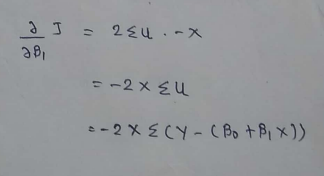 ∂/∂β₁ J = 2Σu . -x
= -2xΣu
= -2xΣ(Y-(β₀+β₁x))